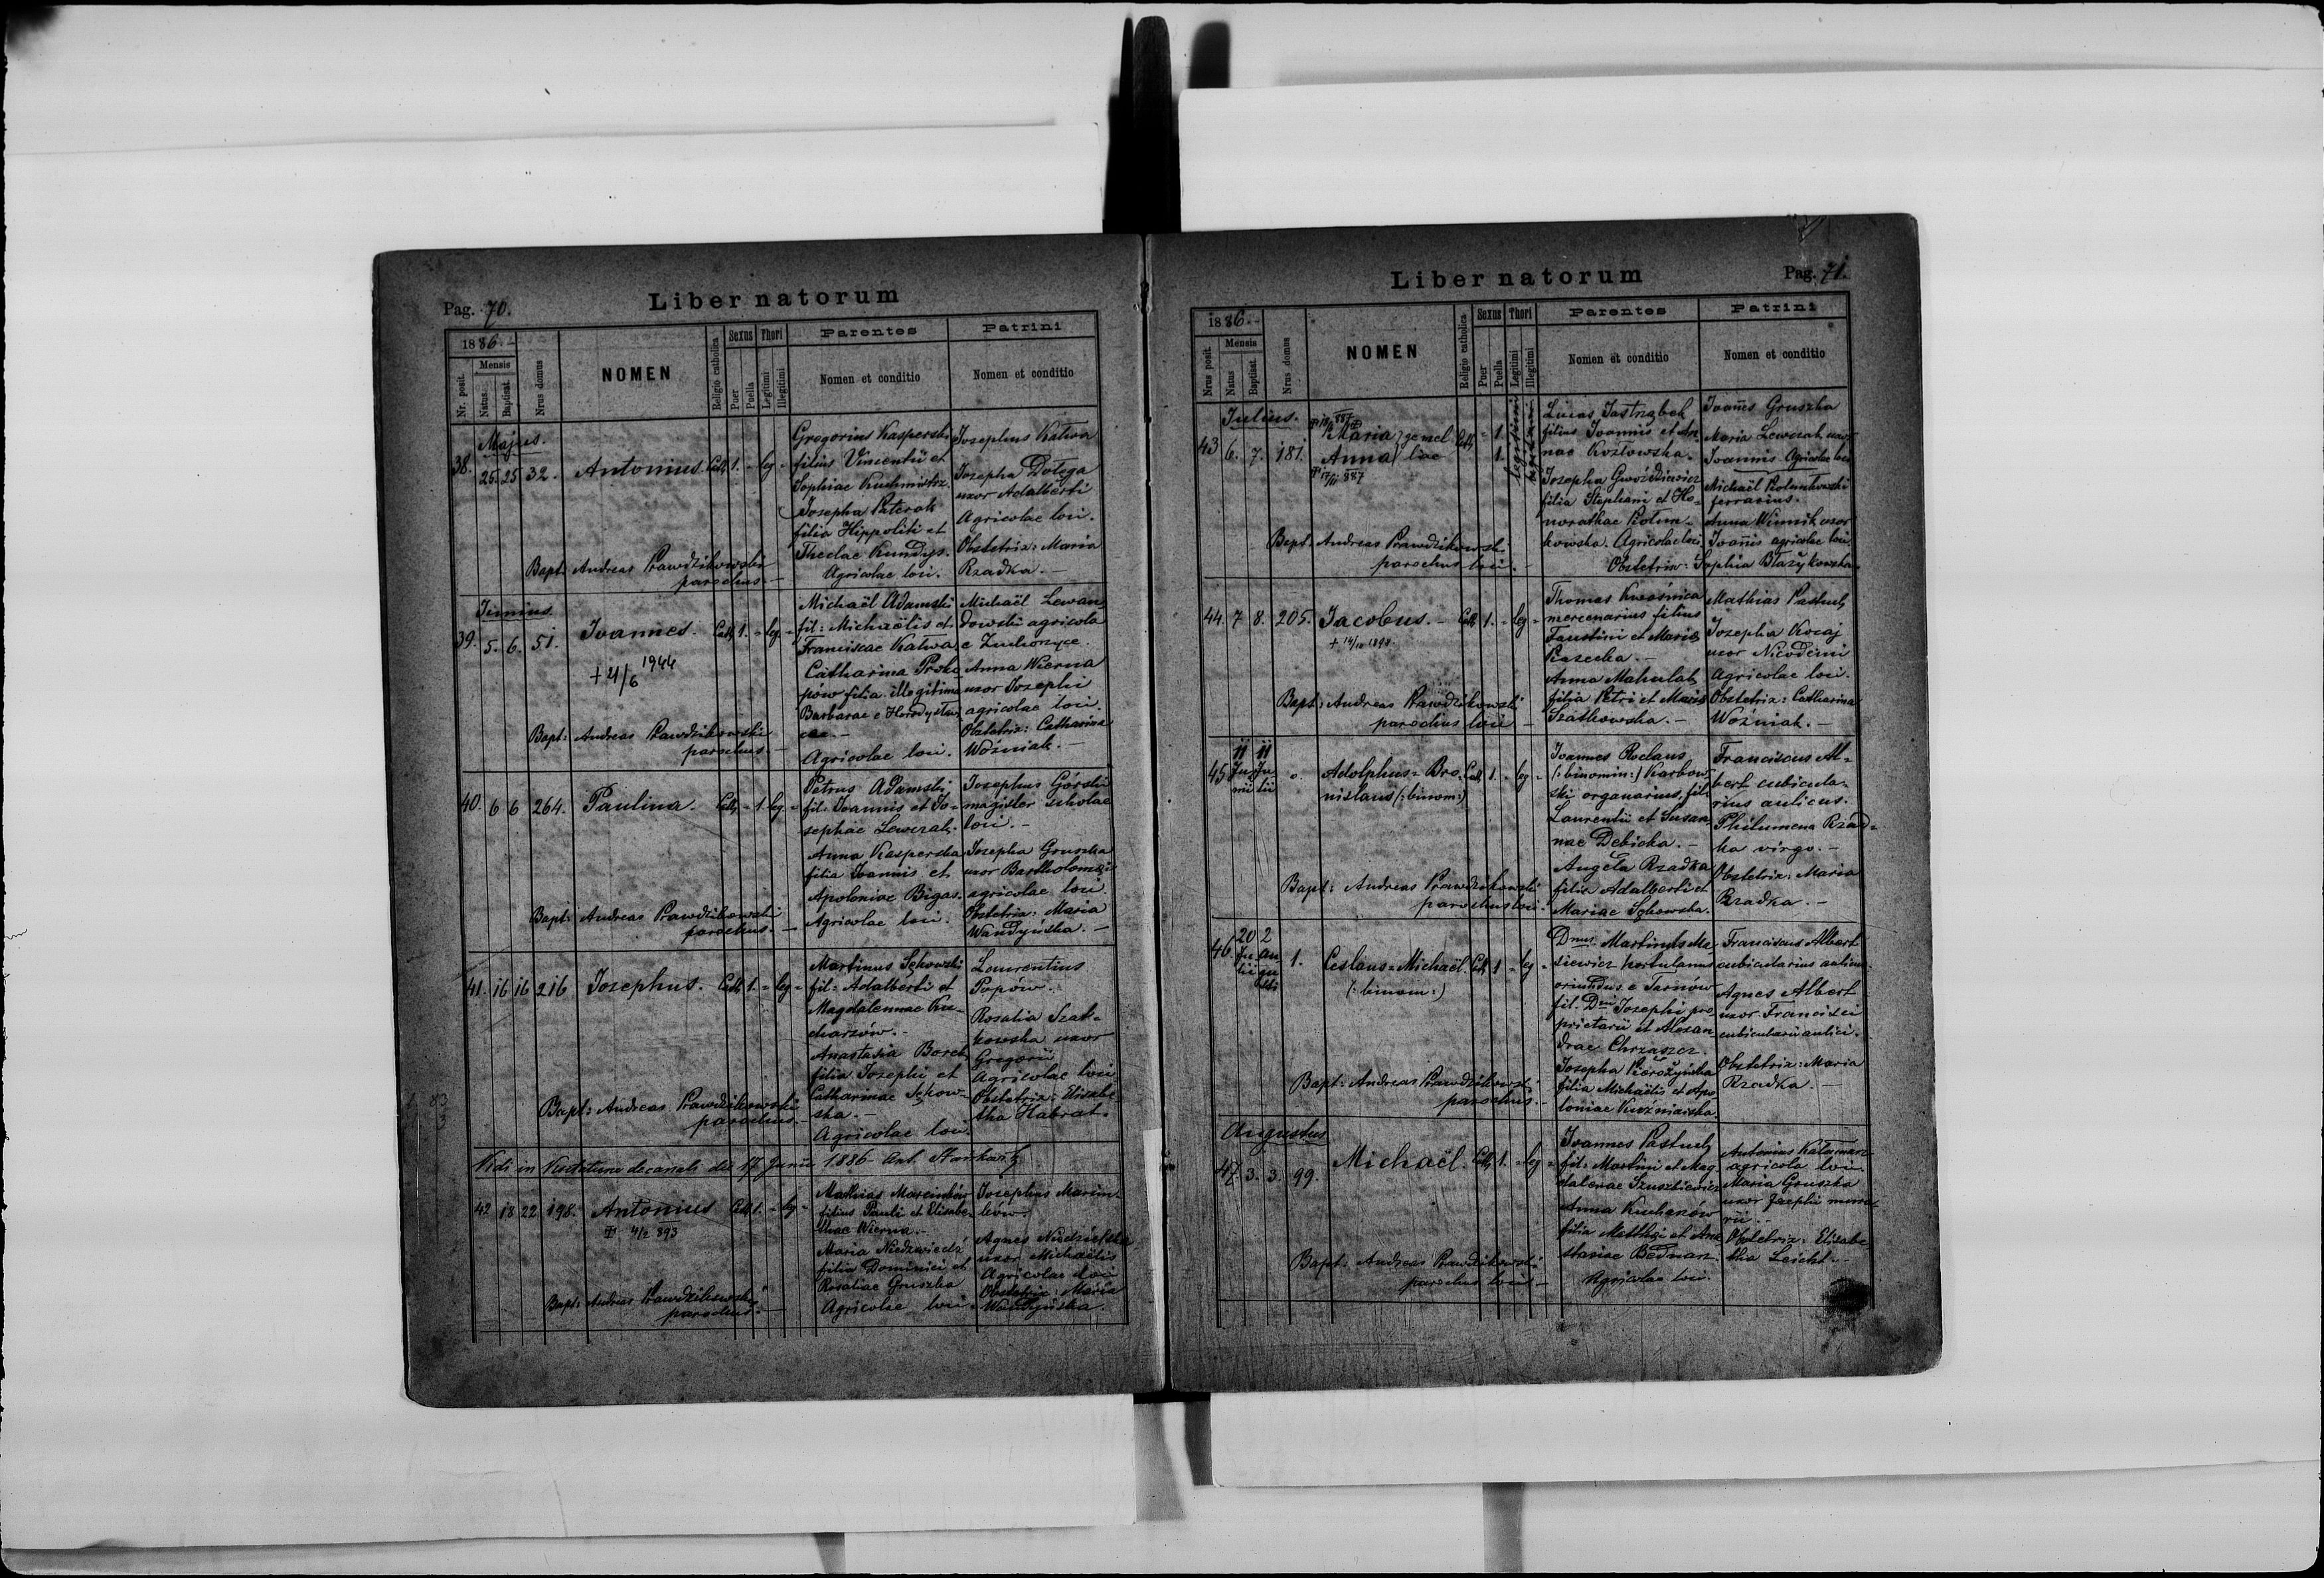 Pag. 70.
Liber natorum
1886.
Nr. posit.
Mensis
Natus.
Baptisat.
Nrus domus
NOMEN
Religio catholica
Sexus
Puer
Puella
Thori
Legitimi
Illegitimi
Parentes
Nomen et conditio
Patrini
Nomen et conditio
Majus.
38. 25. 25 32. Antonius. Cath 1. - leg -
Gregorius Kasperski
filius Vincentii et
Sophiae Kuchmistrz.
Josepha Paterak
filia Hippoliti et
Theclae Kundys.
Agricolae loci.
Josephus Katwa
Josepha Dołęga
uxor Adalberti
Agricolae loci.
Obstetrix: Maria
Rzadka. -
Bapt: Andreas Prawdzikowski
parochus. -
Junius.
39. 5. 6. 51. Ioannes. Cath 1. - leg -
+ 4/6 1944
Michaël Adamski
fil: Michaëlis et
Franciscae Katwa
Catharina Proko
pów filia illegitima
Barbarae e Horodysław
Agricolae loci.
Michaël Lewan
dowski agricola
e
Anna Wierna
uxor Josephi
agricolae loci.
Obstetrix: Catharina
Woźniak. -
Bapt: Andreas Prawdzikowski
parochus. -
40. 6 6 264. Paulina. Cath - 1. leg. -
Petrus Adamski
fil: Ioannis et Jo-
sephae Lewczak.
Anna Kasperska
filia Ioannis et
Apoloniae Bigas.
Agricolae loci.
Josephus Górski
magister scholae
loci. -
Josepha Gruszka
uxor Bartholomaei
agricolae loci.
Obstetrix: Maria
Wandyńska. -
Bapt: Andreas Prawdzikowski
parochus. -
41. 16 16 216 Josephus. Cath 1. - leg -
Martinus Sękowski
fil: Adalberti et
Magdalenae Ku-
charzów. -
Anastasia Borek
filia Josephi et
Catharinae Sękow-
ska. -
Agricolae loci.
Laurentius
Popów.
Rosalia Szat-
kowska uxor
Gregorii
Agricolae loci
Obstetrix: Elisabe
tha Habrat.
Bapt: Andreas Prawdzikowski
parochus. -
Vidi in Visitatione decanali die 17 Junii 1886 Ant.
42 18 22 198. Antonius Cath 1. - leg -
4/2 893
Mathias Marcinków
filius Pauli et Elisabe-
thae Wierna. -
Maria Niedzwiedź
filia Dominici et
Rosaliae Gruszka
Agricolae loci.
Josephus Marcin-
kow.
Agnes
uxor Michaëlis
Agricolae loci
Obstetrix: Maria
Wandyńska.
Bapt: Andreas Prawdzikowski
parochus. -
Liber natorum
Pag. 71.
1886.
Nrus posit.
Mensis
Natus
Baptisat.
Nrus domus
NOMEN
Religio catholica
Sexus
Puer
Puella
Thori
Legitimi
Illegitimi
Parentes
Nomen et conditio
Patrini
Nomen et conditio
Julius.
43 6. 7. 181. Maria } gemel Cath - 1. legitimi
Anna } lae 1.
887
Lucas Jastrzębek
filius Ioannis et An
nae Kozłowska.
Josepha Gwoździewicz
filia Stephani et Ho-
norathae Kotuń-
kowska. Agricolae loci
Ioannes Gruszka
Maria Lewczak uxor
Ioannis Agricolae loci
Michaël
ferrarius.
Anna Winnik uxor
Ioannis agricolae loci
Obstetrix: Sophia Błażykowska
Bapt: Andreas Prawdzikowski
parochus loci. -
44. 7 8. 205. Jacobus. - Cath 1. - leg -
+ 1898
Thomas Kwaśnica
mercenarius filius
Faustini et Mariae
Piasecka. -
Anna Mahulak
filia Petri et Mariae
Szatkowska. -
Mathias Pastuch
Josepha Kocaj
uxor Nicodemi
Agricolae loci.
Obstetrix: Catharina
Woźniak. -
Bapt: Andreas Prawdzikowski
parochus loci -
45. 11 Junii 11 Julii 0. Adolphus = Bro- Cath 1. - leg -
nislaus (: binom :)
Ioannes Roclaus
(: binomin :) Karbow
ski organarius, fil:
Laurentii et Susan
nae Dębicka. -
Angela Rzadka
filia Adalberti et
Mariae Sękowska.
Franciscus Al-
bert cubicula-
rius aulicus.
Philumena Rzad-
ka virgo. -
Obstetrix: Maria
Rzadka. -
Bapt: Andreas Prawdzikowski
parochus loci. -
46. 20 Julii 2 Augusti 1. Ceslaus = Michaël. Cath 1 - leg -
(: binom :)
Dnus Martinus Ma
siewicz hortulanus
oriundus e Tarnów
fil. Dni Josephi pro
prietarii et Alexan
drae Chrząszcz.
Josepha Pierożyńska
filia Michaëlis et Apo
loniae Kuźniarska
Franciscus Albert
cubicularius aulicus.
Agnes Albert
uxor Francisci
cubicularii aulici.
Obstetrix: Maria
Rzadka. -
Bapt: Andreas Prawdzikowski
parochus. -
Augustus
47. 3. 3. 99. Michaël. Cath 1. - leg -
Ioannes Pastuch
fil: Martini et Mag
dalenae Szuszkiewicz
Anna Kucharzów
filia Matthaei et Ana
stasiae Bednarz.
Agricolae loci.
Antonius
agricola loci.
Maria Gruszka
uxor Josephi mura-
rii. -
Obstetrix: Elisabe
tha Leicht. -
Bapt: Andreas Prawdzikowski
parochus loci -